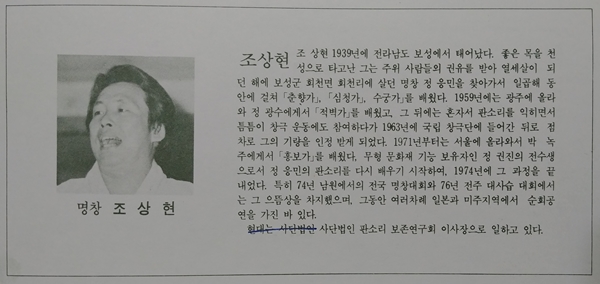 조상현 조 상현 1939년에 전라남도 보성에서 태어났다. 좋은 목을 천
성으로 타고난 그는 주위 사람들의 권유를 받아 열세살이 되
던 해에 보성군 회천면 회천리에 살던 명창 정 응민을 찾아가서 일곱해 동
안에 걸쳐「춘향가」,「심청가」, 수궁가」를 배웠다. 1959년에는 광주에 올라
와 정 광수에게서「적벽가」를 배웠고, 그 뒤에는 혼자서 판소리를 익히면서
틈틈이 창극 운동에도 참여하다가 1963년에 국립 창극단에 들어간 뒤로 점
차로 그의 기량을 인정 받게 되었다. 1971년부터는 서울에 올라와서 박 녹
주에게서「흥보가」를 배웠다. 무형 문화재 기능 보유자인 정 권진의 전수생
으로서 정 응민의 판소리를 다시 배우기 시작하여, 1974년에 그 과정을 끝
내었다. 특히 74년 남원에서의 전국 명창대회와 76년 전주 대사습 대회에서
는 그 으뜸상을 차지했으며, 그동안 여러차례 일본과 미주지역에서 순회공
연을 가진 바 있다.
현대는 사단법인 사단법인 판소리 보존연구회 이사장으로 일하고 있다.
명창 조상현